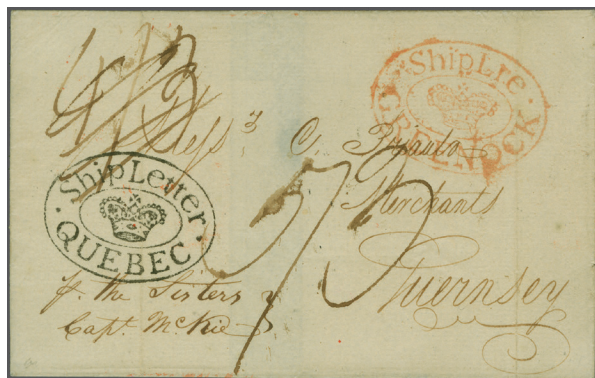 Ship Lre
GREENOCK
Mess³ C.
Merchants
Guernsey
Ship Letter
QUEBEC
p. the Sisters
Capt. McKie